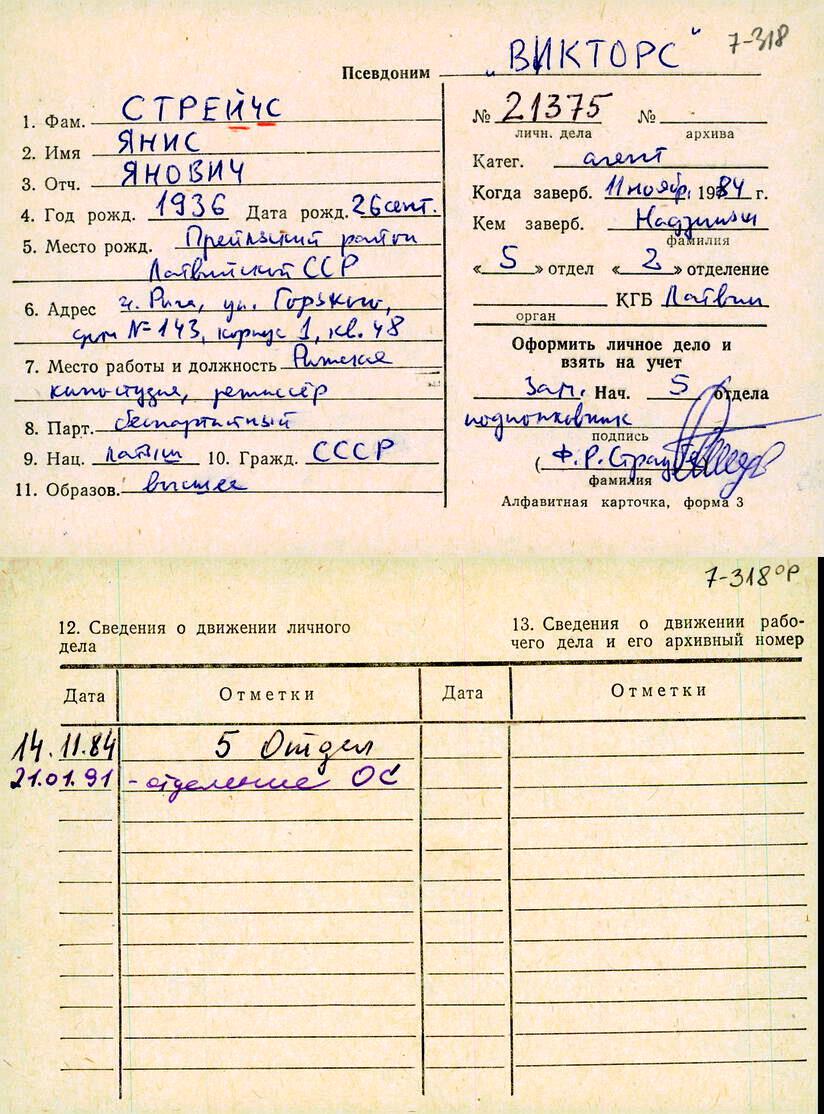 7-318
Псевдоним "ВИКТОРС"
1. Фам. СТРЕЙЧС
2. Имя ЯНИС
3. Отч. ЯНОВИЧ
4. Год рожд. 1936 Дата рожд. 26 сент.
5. Место рожд. Прейльский район
Латвийской ССР
6. Адрес г. Рига, ул. Горького,
дом № 143, корпус 1, кв. 48
7. Место работы и должность Рижская
киностудия, режиссёр
8. Парт. беспартийный
9. Нац. латыш 10. Гражд. СССР
11. Образов. высшее
№ 21375 №
личн. дела архива
Катег. агент
Когда заверб. 11 нояб. 1984 г.
Кем заверб.
фамилия
«5» отдел «2» отделение
КГБ Латвии
орган
Оформить личное дело и
взять на учет
Зам. Нач. 5 отдела
подполковник
подпись
(Ф.Р.
фамилия
Алфавитная карточка, форма 3
7-318 ОР
12. Сведения о движении личного
дела
13. Сведения о движении рабо-
чего дела и его архивный номер
Дата Отметки Дата Отметки
14.11.84 5 Отдел
21.01.91 - отделение ОС